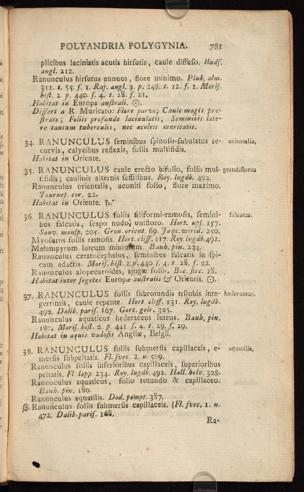 POLYANDRIA POLYGYNIA. 781
plicibus laciniatis acutis hirsutis, caule diffuso. Huds.
angl. 212.
Ranunculus hirsutus annuus, flore minimo. Pluk. alm.
311. t. 55. f. 1. Raj. angl. 3. p. 248. t. 12. f. 1. Morif.
hist. 2. p. 440. s. 4. t. 28. f. 21.
Habitat in Europa australi. ☉.
Differt a R. Muricato: Flore parvo; Caule magis pro-
strato; Foliis profunde laciniatis; Seminibus late-
re tantum tuberculis, nec aculeis muricatis.
34. RANUNCULUS seminibus spinoso-subulatis re- orientalis.
curvis, calycibus reflexis, foliis multifidis.
Habitat in Oriente.
35. RANUNCULUS caule erecto bifolio, foliis mul- grandiflorus
tifidis; caulinis alternis sessilibus. Roy. lugdb. 492.
Ranunculus orientalis, aconiti folio, flore maximo.
Tournef. cor. 22.
Habitat in Oriente. ♃.
36. RANUNCULUS foliis filiformi-ramosis, semini- falcatus.
bus falcatis, scapo nudo, unifloro. Hort. ups. 157.
Sauv. monsp. 205. Gron. orient. 69. Jacq. vind. 250.
Myosuros foliis ramosis. Hort. cliff. 117. Roy. lugdb. 492.
Melampyrum luteum minimum. Bauh. pin. 234.
Ranunculus ceratocephalus, seminibus falcatis in spi-
cam adactis. Morif. hist. 2. p. 440. s. 4. t. 28. f. 22.
Ranunculus alopecuroides, ajugæ foliis. Boc. sicc. 28.
Habitat inter segetes Europæ australis & Orientis. ☉.
37. RANUNCULUS foliis subrotundis trilobis inte- hederaceus.
gerrimis, caule repente. Hort. cliff. 231. Roy. lugdb.
492. Dalib. paris. 167. Gort. gelr. 325.
Ranunculus aquaticus hederaceus luteus. Bauh. pin.
180. Morif. hist. 2. p. 441. s. 4. t. 29. f. 29.
Habitat in aquis vadosis Angliæ, Belgii.
38. RANUNCULUS foliis submersis capillaceis, e- aquatilis.
mersis subpeltatis. Fl. svec. 2. n. 509.
Ranunculus foliis inferioribus capillaceis, superioribus
peltatis. Fl. lapp. 234. Roy. lugdb. 492. Hall. helv. 328.
Ranunculus aquaticus, folio rotundo & capillaceo.
Bauh. pin. 180.
Ranunculus aquatilis. Dod. pempt. 587.
β. Ranunculus foliis submersis capillaceis. Fl. svec. 1. n.
472. Dalib. paris. 168.
Ra-